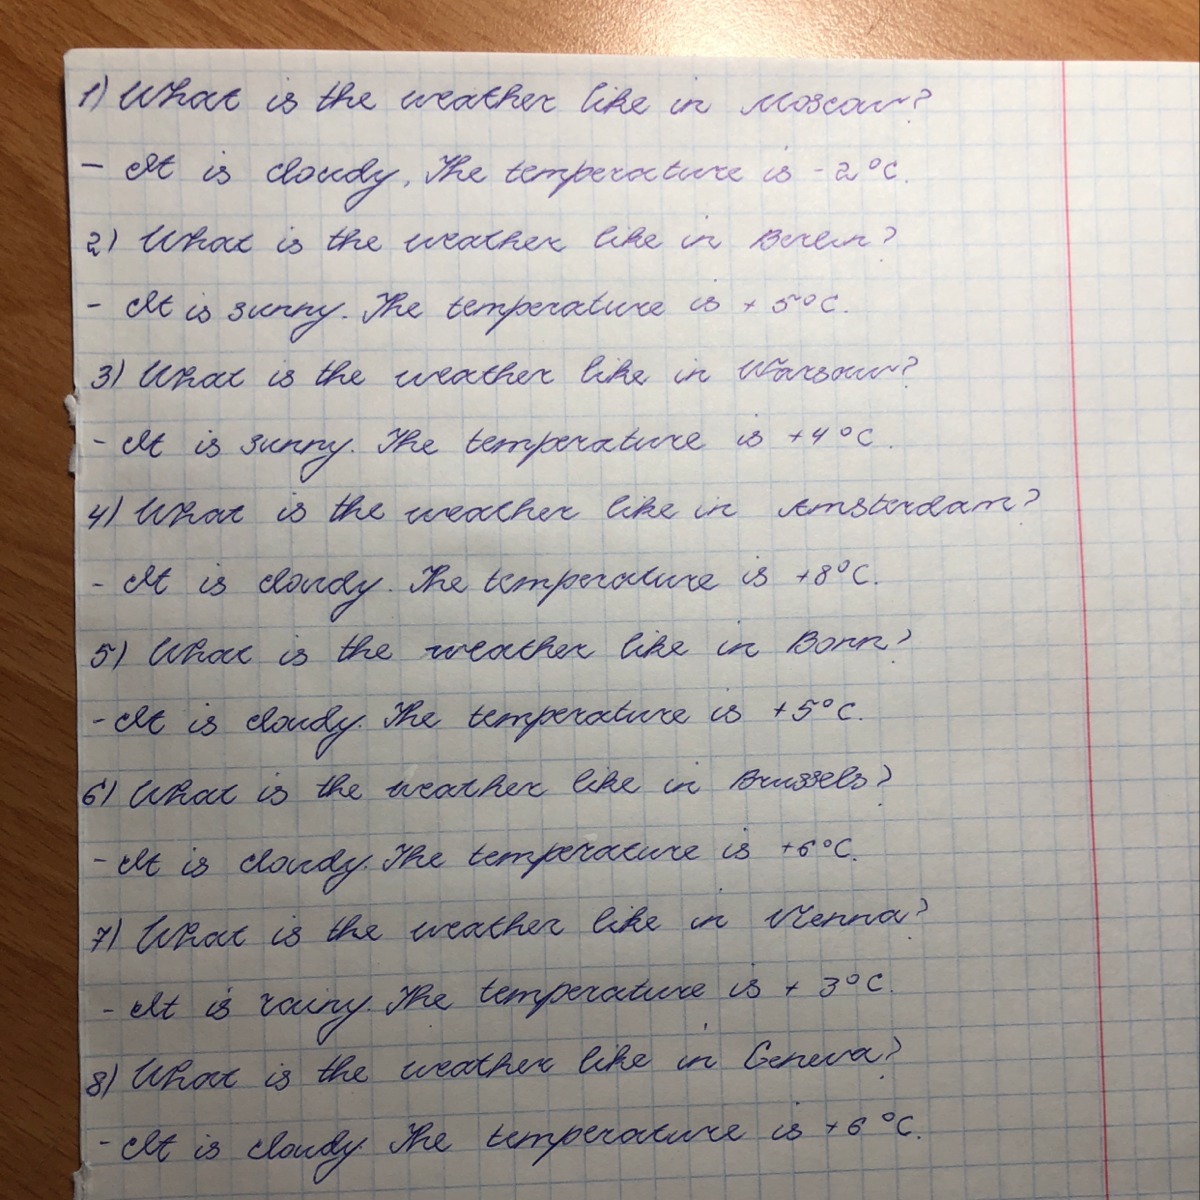 1) What is the weather like in Moscow?
- It is cloudy. The temperature is -2°C.
2) What is the weather like in Berlin?
- It is sunny. The temperature is +5°C.
3) What is the weather like in Warsaw?
- It is sunny. The temperature is +4°C.
4) What is the weather like in Amsterdam?
- It is cloudy. The temperature is +8°C.
5) What is the weather like in Bonn?
- It is cloudy. The temperature is +5°C.
6) What is the weather like in Brussels?
- It is cloudy. The temperature is +6°C.
7) What is the weather like in Vienna?
- It is rainy. The temperature is +3°C.
8) What is the weather like in Geneva?
- It is cloudy. The temperature is +6°C.